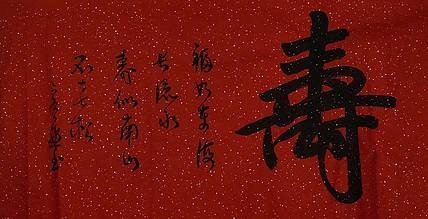 壽
福如東海
長流水
壽似南山
不老松